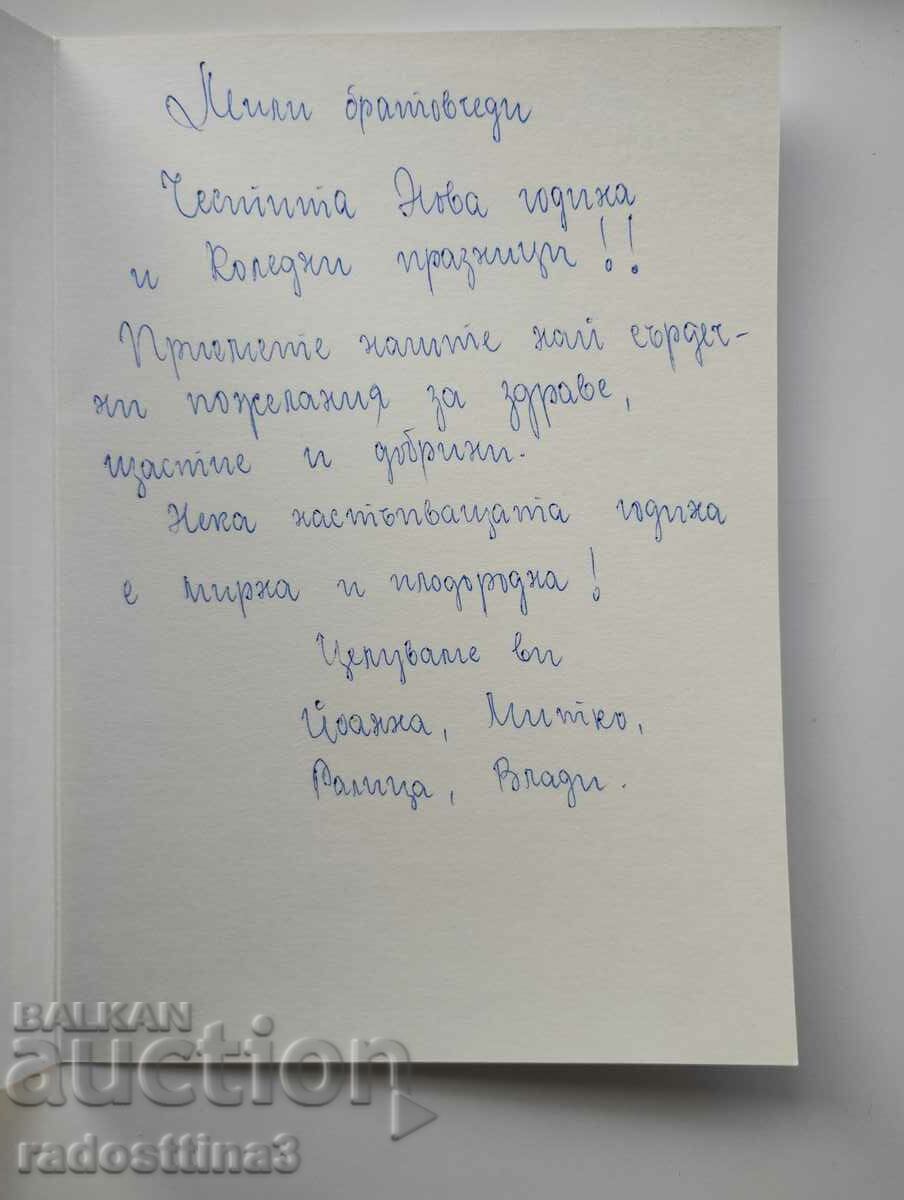 Мили братовчеди
Честита Нова година
и Коледни празници!!
Приемете нашите най сърдеч-
ни пожелания за здраве,
щастие и добрини.
Нека настъпващата година
е мирна и плодородна!
Целуваме ви
Йоанна, Митко,
Ралица, Влади.
BALKAN
auction
radosttina3